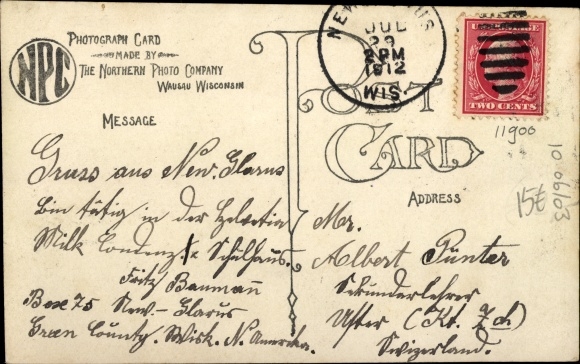 PHOTOGRAPH CARD
MADE BY
THE NORTHERN PHOTO COMPANY
WAUSAU WISCONSIN
NPC
POST
CARD
MESSAGE
ADDRESS
NEW GLARUS
JUL
23
2 PM
1912
WIS.
TWO CENTS
11900
10.06/03
15€
Gruss aus New. Glarus
bin tätig in der Helvetia
Milk Condenz. Schulhaus.
Fritz Baumann
Box 75 New-Glarus
Green County. Wisk. N. Amerika.
Mr.
Albert Pünter
Sekundarlehrer
Uster (Kt. Zch)
Swizerland